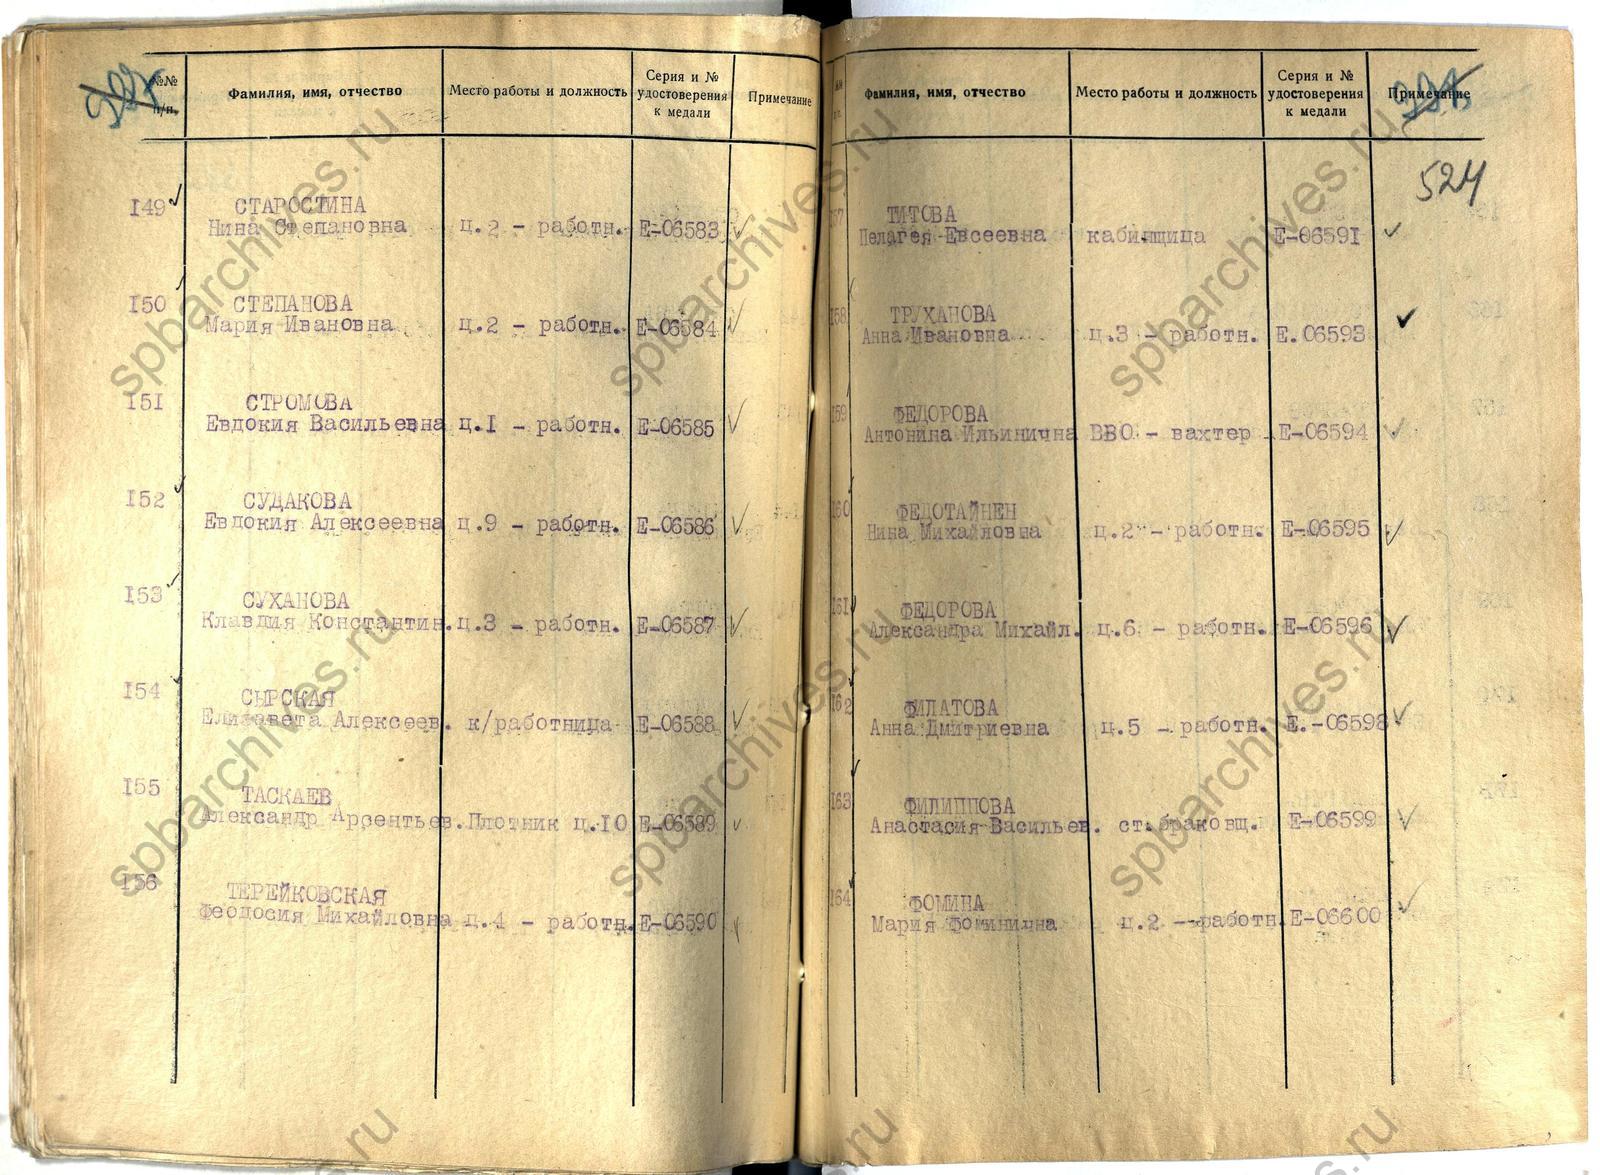 №№ п/п.
Фамилия, имя, отчество
Место работы и должность
Серия и № удостоверения к медали
Примечание
149 СТАРОСТИНА
Нина Степановна ц.2 - работн. Е-06583
150 СТЕПАНОВА
Мария Ивановна ц.2 - работн. Е-06584
151 СТРОМОВА
Евдокия Васильевна ц.1 - работн. Е-06585
152 СУДАКОВА
Евдокия Алексеевна ц.9 - работн. Е-06586
153 СУХАНОВА
Клавдия Константин. ц.3 - работн. Е-06587
154 СЫРСКАЯ
Елизавета Алексеев. к/работница Е-06588
155 ТАСКАЕВ
Александр Арсентьев. Плотник ц.10 Е-06589
156 ТЕРЕЙКОВСКАЯ
Феодосия Михайловна ц.4 - работн. Е-06590
Фамилия, имя, отчество
Место работы и должность
Серия и № удостоверения к медали
Примечание
524
157 ТИТОВА
Пелагея Евсеевна кабинщица Е-06591
158 ТРУХАНОВА
Анна Ивановна ц.3 - работн. Е.06593
159 ФЕДОРОВА
Антонина Ильинична ВВО - вахтер Е-06594
160 ФЕДОТАЙНЕН
Нина Михайловна ц.2 - работн. Е-06595
161 ФЕДОРОВА
Александра Михайл. ц.6 - работн. Е-06596
162 ФИЛАТОВА
Анна Дмитриевна ц.5 - работн. Е.-06598
163 ФИЛИППОВА
Анастасия Васильев. ст.браковщ. Е-06599
164 ФОМИНА
Мария Фоминична ц.2 - работн. Е-06600
spbarchives.ru
spbarchives.ru
spbarchives.ru
spbarchives.ru
spbarchives.ru
spbarchives.ru